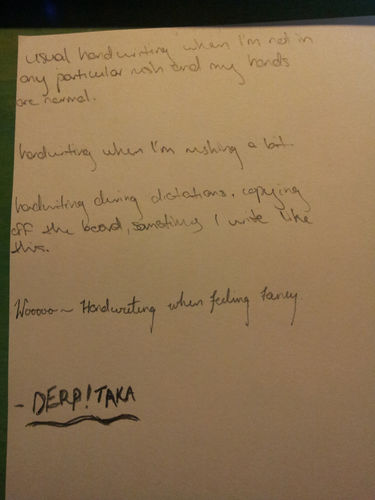 usual handwriting when I'm not in
any particular rush and my hands
are normal.
handwriting when I'm rushing a bit.
handwriting during dictations, copying
off the board, sometimes I write like
this.
Wooooo~ Handwriting when feeling fancy
- DERP!TAKA